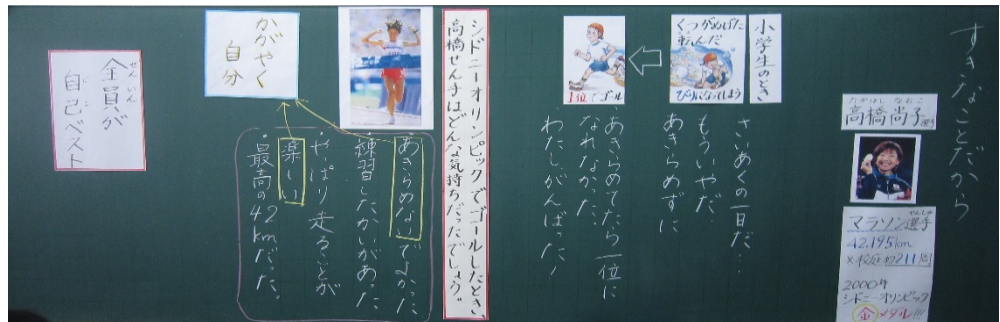 すきなことだから
たかはし なおこ
高橋尚子選手
マラソン選手
せんしゅ
42.195km
※校庭約211周
2000年
シドニーオリンピック
金メダル!!!
小学生のとき
くつがぬげた
転んだ
びりになってしまう
1位でゴール
さいあくの一日だ…
もういやだ。
あきらめずに
あきらめてたら一位に
なれなかった。
わたしがんばった!
シドニーオリンピックでゴールしたとき、
高橋せん手はどんな気持ちだったでしょう。
・あきらめないでよかった
・練習したかいがあった
・やっぱり走ることが
楽しい
・最高の42kmだった。
かがやく
自分
ぜんいん
全員が
じこ
自己ベスト